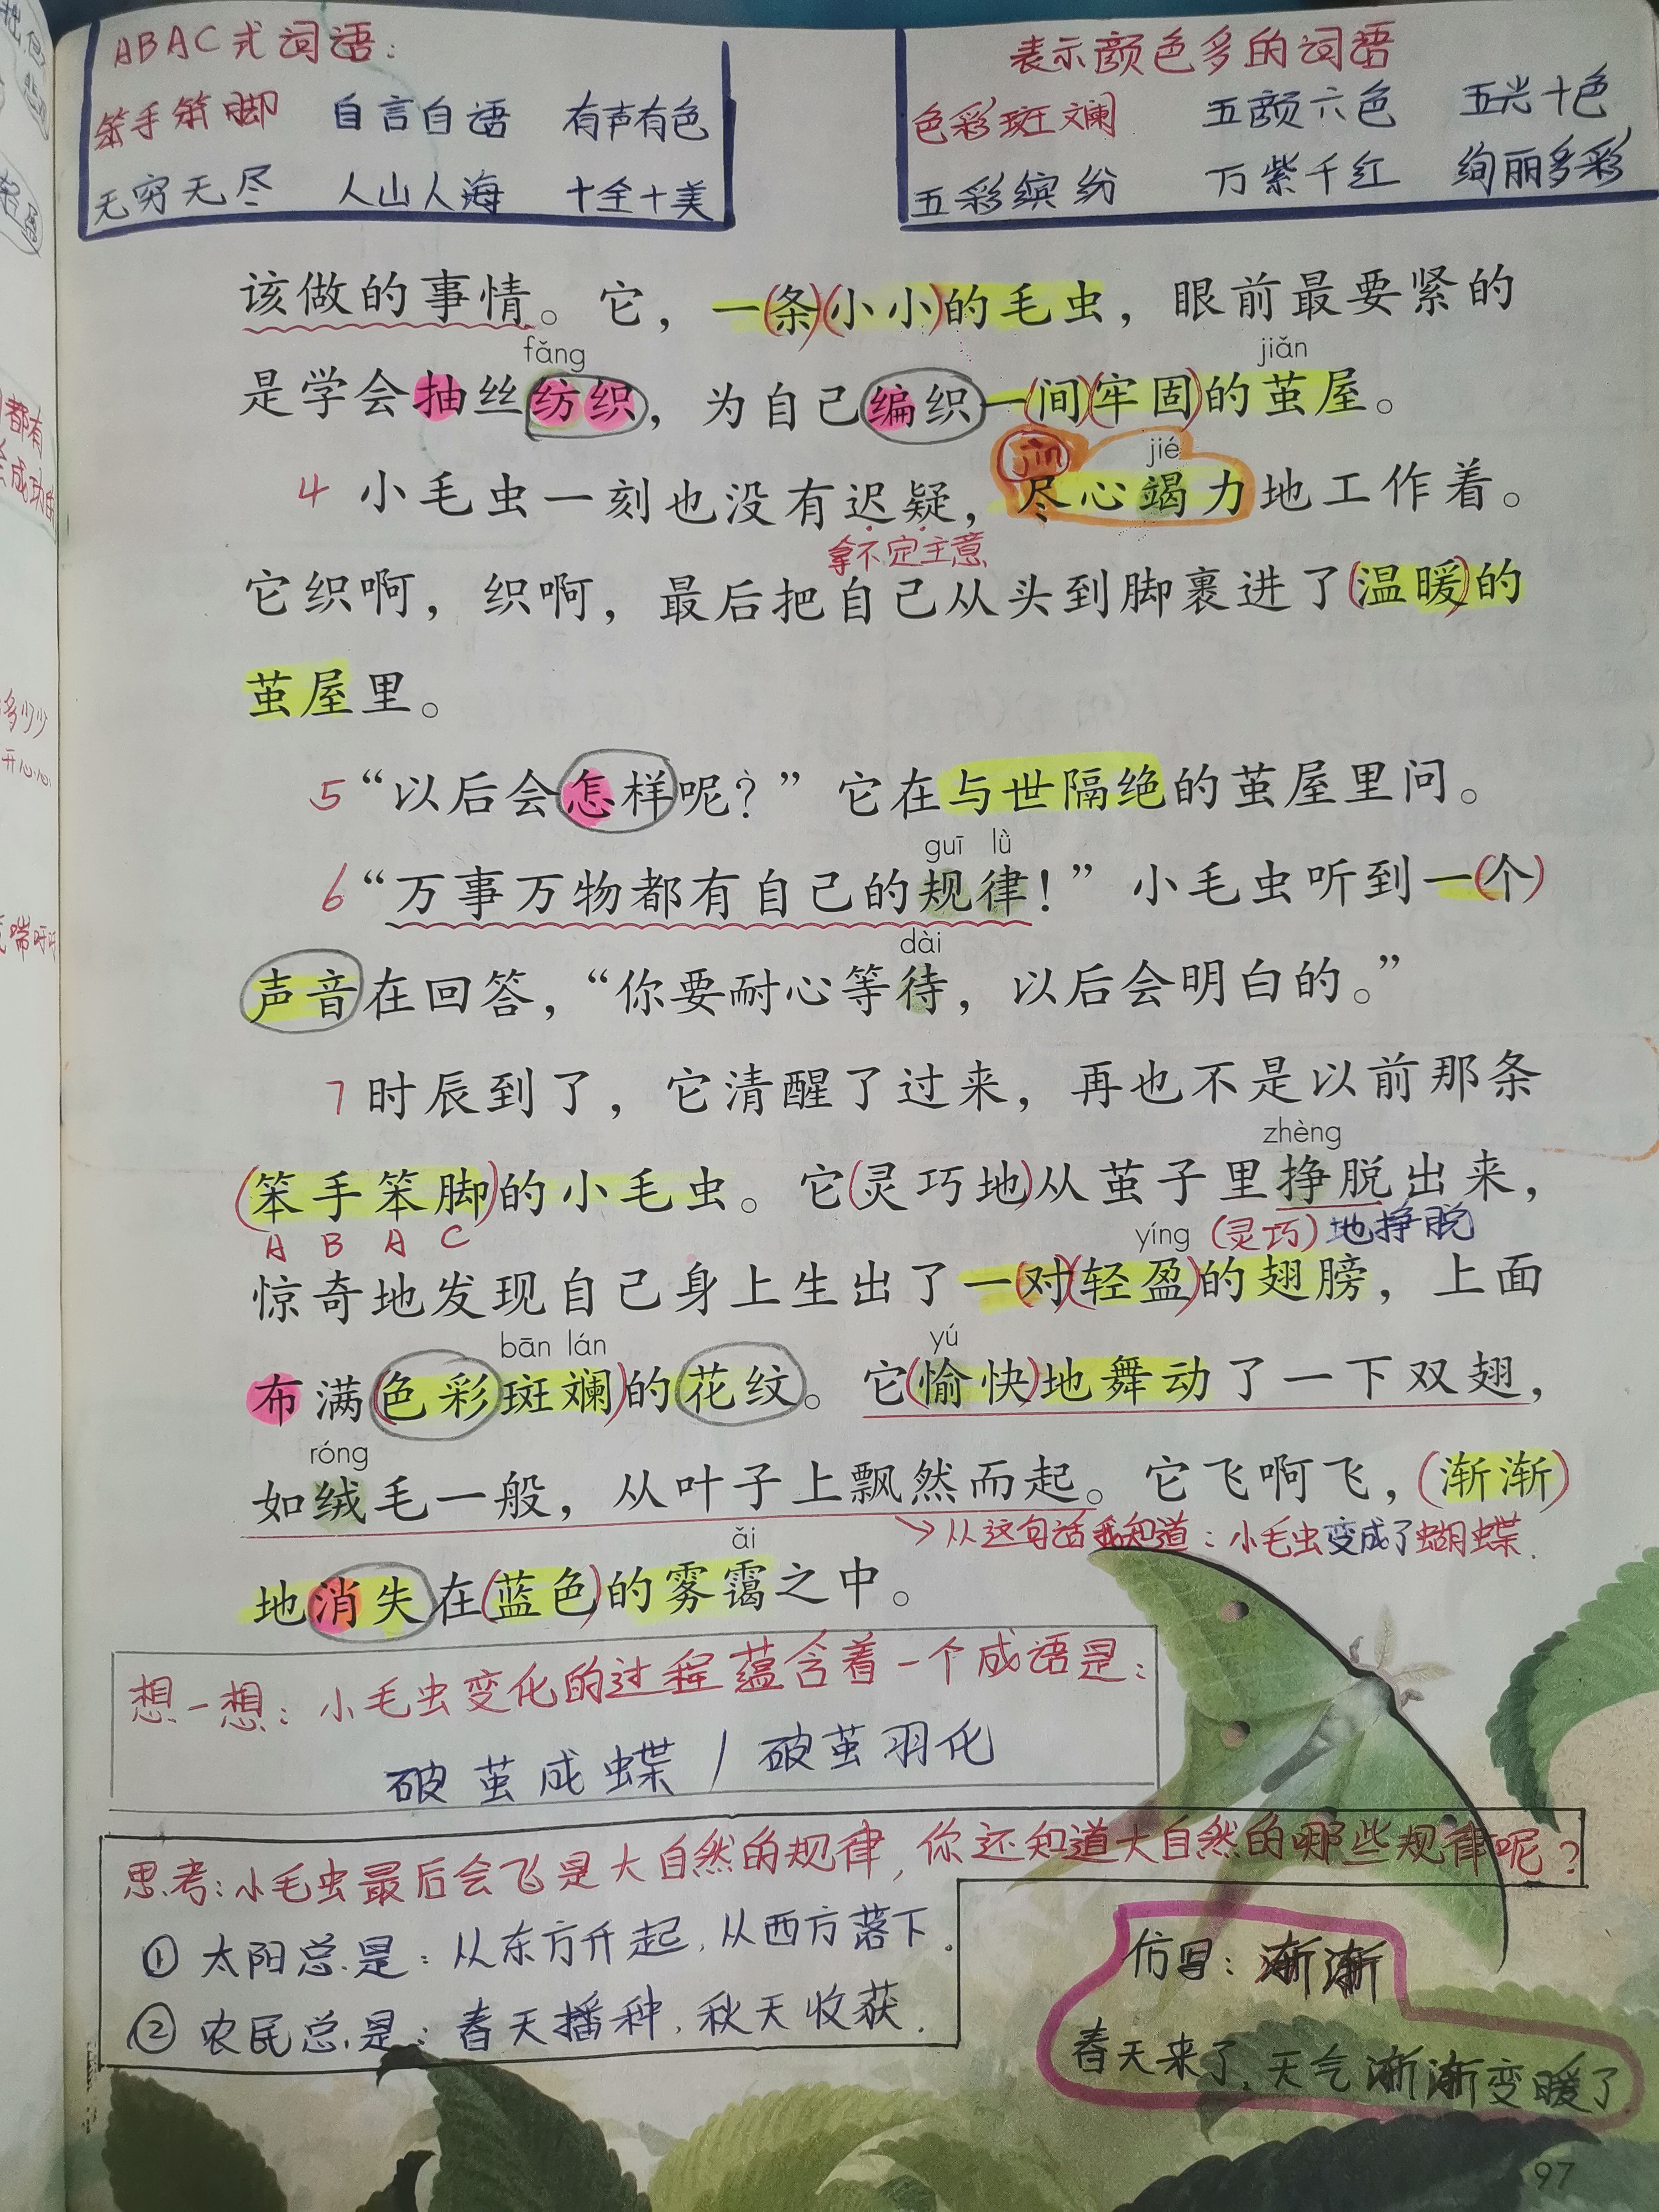 ABAC式词语：
笨手笨脚 自言自语 有声有色
无穷无尽 人山人海 十全十美
表示颜色多的词语
色彩斑斓 五颜六色 五光十色
五彩缤纷 万紫千红 绚丽多彩
该做的事情。它，一(条)(小小)的毛虫，眼前最要紧的
fǎng jiǎn
是学会抽丝纺织，为自己编织一(间)(牢固)的茧屋。
jìn jié
4 小毛虫一刻也没有迟疑，尽心竭力地工作着。
拿不定主意
它织啊，织啊，最后把自己从头到脚裹进了(温暖)的
茧屋里。
5 “以后会怎样呢？”它在与世隔绝的茧屋里问。
guī lǜ
6 “万事万物都有自己的规律！”小毛虫听到一(个)
dài
声音在回答，“你要耐心等待，以后会明白的。”
7 时辰到了，它清醒了过来，再也不是以前那条
zhèng
(笨手笨脚)的小毛虫。它(灵巧地)从茧子里挣脱出来，
A B A C
yíng (灵巧)地挣脱
惊奇地发现自己身上生出了一(对)(轻盈)的翅膀，上面
bān lán yú
布满(色彩斑斓)的花纹。它(愉快)地舞动了一下双翅，
róng
如绒毛一般，从叶子上飘然而起。它飞啊飞，(渐渐)
从这句话我知道：小毛虫变成了蝴蝶.
ǎi
地消失在(蓝色)的雾霭之中。
想一想：小毛虫变化的过程蕴含着一个成语是：
破茧成蝶 / 破茧羽化
思考：小毛虫最后会飞是大自然的规律，你还知道大自然的哪些规律呢？
① 太阳总是：从东方升起，从西方落下.
② 农民总是：春天播种，秋天收获.
仿写：渐渐
春天来了，天气渐渐变暖了
97
都有
成功的
多少少
开心心
喘吁吁